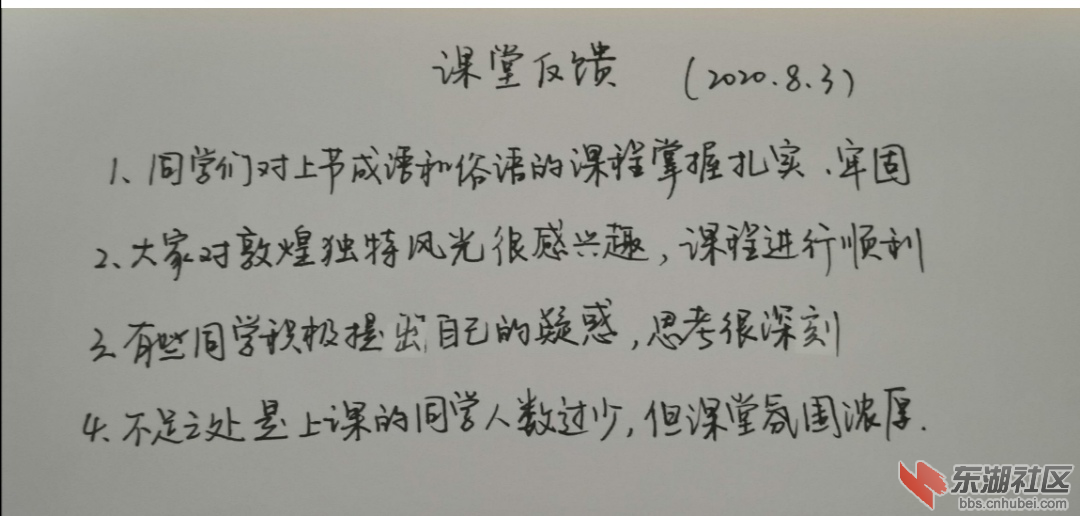 课堂反馈 (2020.8.3)
1、同学们对上节成语和俗语的课程掌握扎实、牢固
2、大家对敦煌独特风光很感兴趣,课程进行顺利
3、有些同学积极提出自己的疑惑,思考很深刻
4、不足之处是上课的同学人数过少,但课堂氛围浓厚.
东湖社区
bbs.cnhubei.com